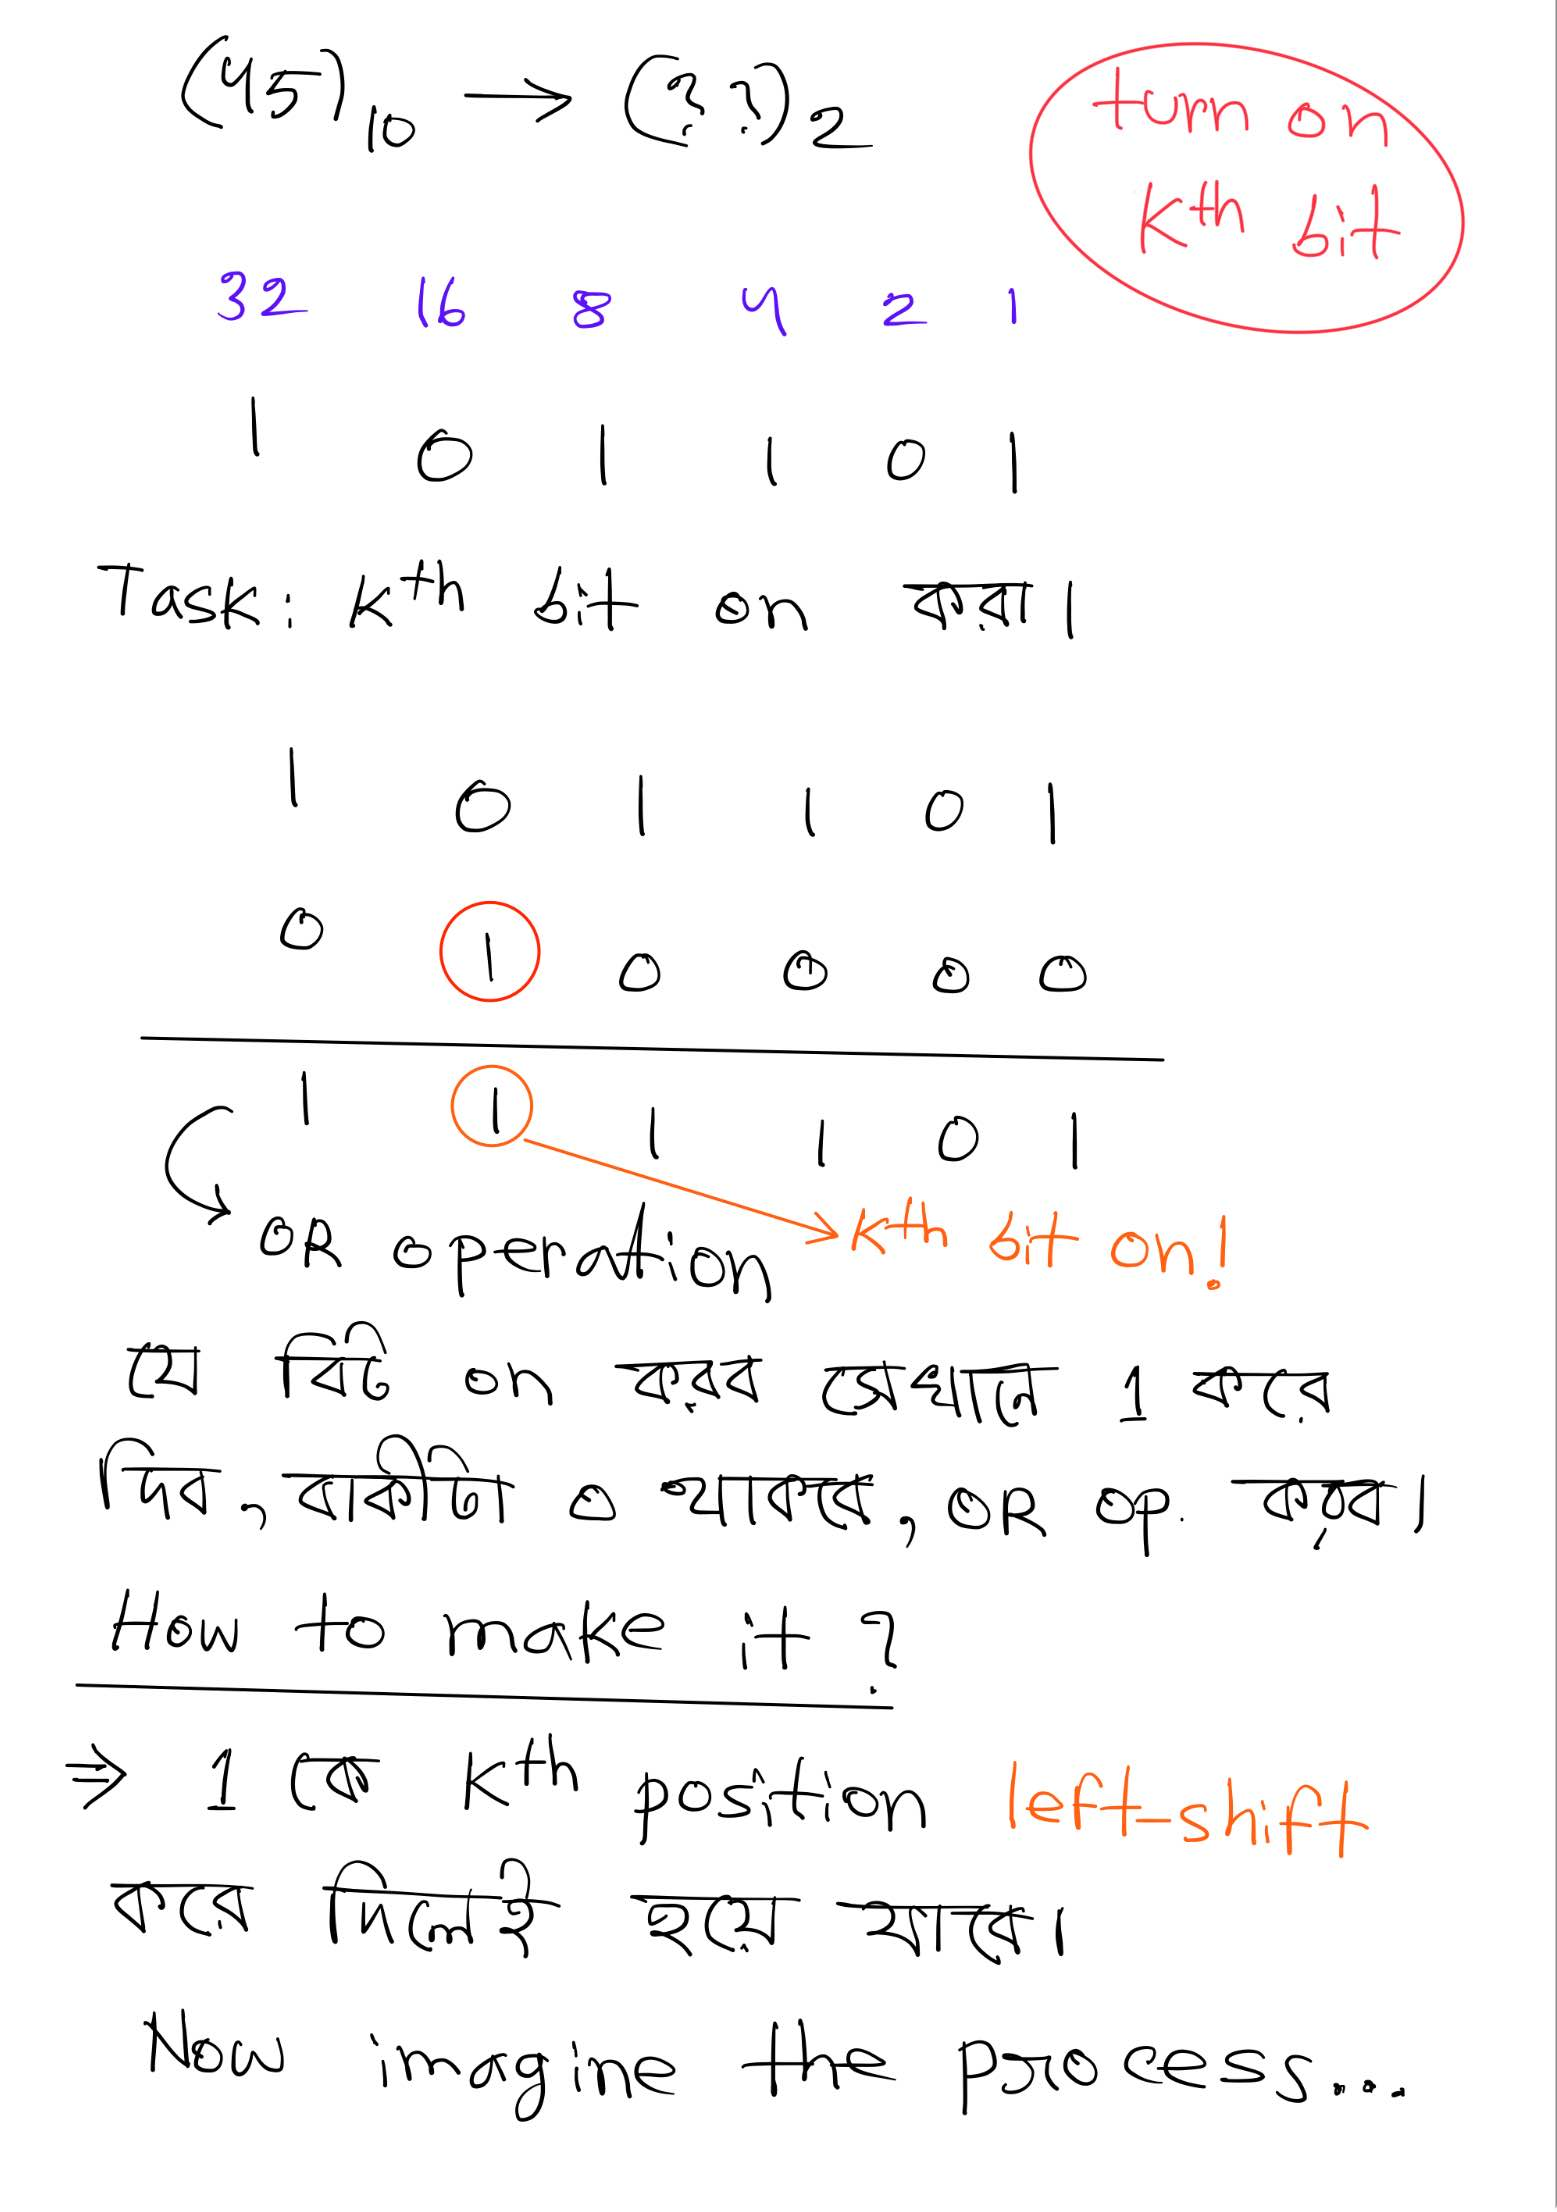 (45)₁₀ → (??)₂
turn on
kth bit
32 16 8 4 2 1
1 0 1 1 0 1
Task: kth bit on করা।
1 0 1 1 0 1
0 1 0 0 0 0
1 1 1 1 0 1
OR operation
kth bit on!
যে বিট on করব সেখানে 1 করে
দিব, বাকীটা 0 থাকবে, OR op. করব।
How to make it?
⇒ 1 কে kth position left-shift
করে দিলেই হয়ে যাবে।
Now imagine the process...